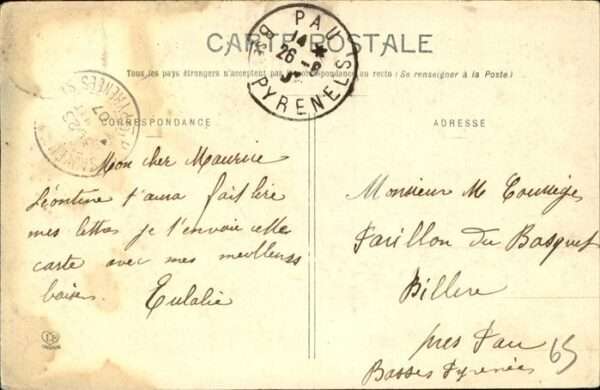 CARTE POSTALE
PAU
14
26 -8
Bses PYRENEES
Tous les pays étrangers n'acceptent pas la correspondance au recto (Se renseigner à la Poste)
07
23
CORRESPONDANCE
ADRESSE
Mon cher Maurice
Léontine t'aura fait lire
mes lettres je t'envoie cette
carte avec mes meilleurs
baisers. Eulalie
Monsieur M
Pavillon du Basquet
Billere
près Pau
Basses Pyrenées